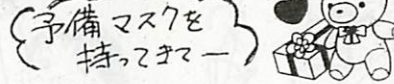 予備マスクを
持ってきてー